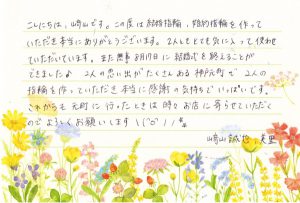 こんにちは、崎山です。この度は結婚指輪、婚約指輪を作って
いただき本当にありがとうございます。2人ともとても気に入って使わせ
ていただいています。また無事8月17日に結婚式を終えることが
できましたよ 2人の思い出がたくさんある神戸元町で2人の
指輪を作っていただき本当に感謝の気持ちでいっぱいです。
これからも元町に行ったときは時々お店に寄らせていただく
のでよろしくお願いします \(^o^)/
崎山 誠也